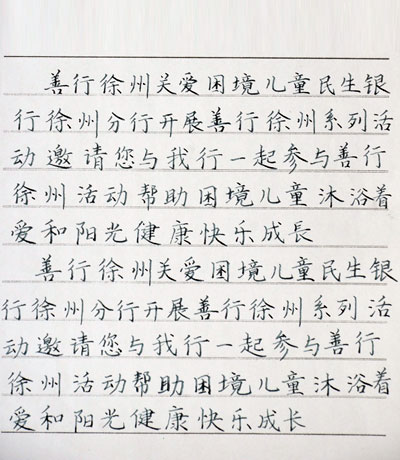 善行徐州关爱困境儿童民生银
行徐州分行开展善行徐州系列活
动邀请您与我行一起参与善行
徐州活动帮助困境儿童沐浴着
爱和阳光健康快乐成長
善行徐州关爱困境儿童民生银
行徐州分行开展善行徐州系列活
动邀请您与我行一起参与善行
徐州活动帮助困境儿童沐浴着
爱和阳光健康快乐成长